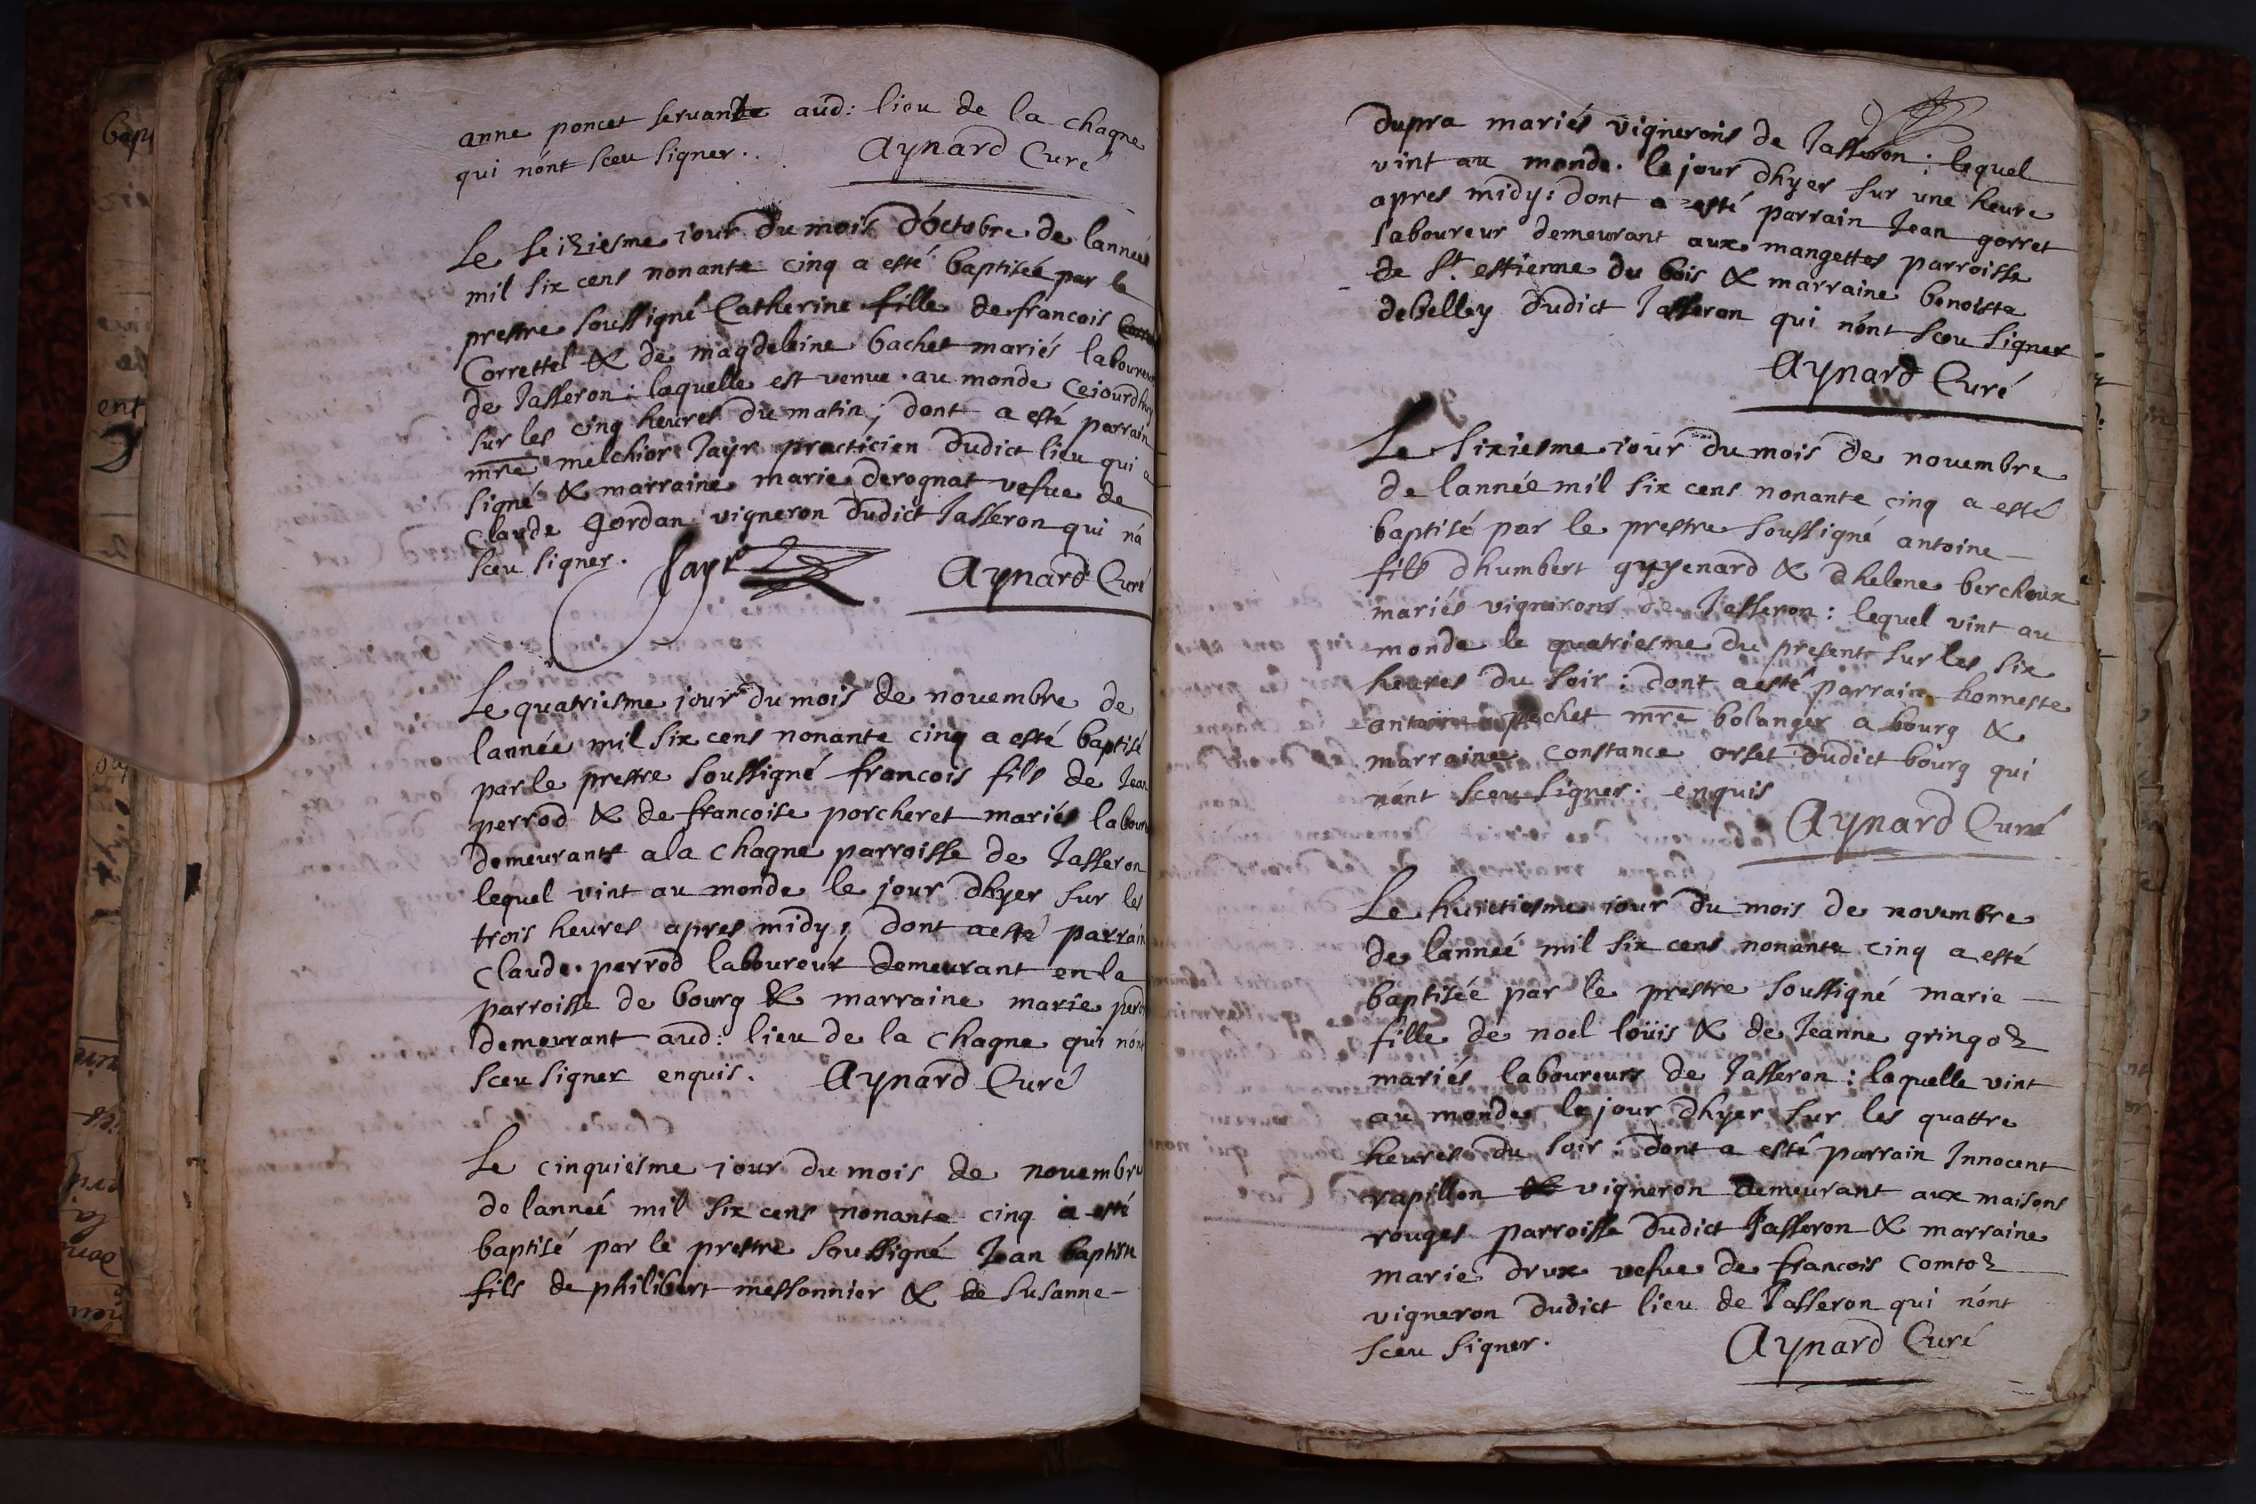 anne poncet servante aud: lieu de la chagne
qui nónt sceu signer. Aynard Curé
Le seiziesme jour du mois d'octobre de lanneé
mil six cens nonante cinq a esté baptiseé par le
prestre soussigné Catherine fille de francois
Correttel & de magdeleine bachet mariés laboureurs
de Jasseron: laquelle est venue au monde cejourdhuy
sur les cinq heures du matin; dont a esté parrain
mre melchior Jayr practicien dudict lieu qui a
signé & marraine marie derognat vefue de
claude Jordan vigneron dudict Jasseron qui ná
sceu signer. Jayr Aynard Curé
Le quatriesme jour du mois de novembre de
lannée mil six cens nonante cinq a esté baptisé
par le prestre soussigné francois fils de Jean
perrod & de francoise porcheret mariés labour
demeurants a la chagne parroisse de Jasseron
lequel vint au monde le jour dhyer sur les
trois heures apres midy; dont a esté parrain
claude perrod laboureur demeurant en la
parroisse de bourg & marraine marie perod
demeurant aud: lieu de la chagne qui nónt
sceu signer enquis. Aynard Curé
Le cinquiesme jour du mois de novembre
de lanneé mil six cens nonante cinq a esté
baptisé par le prestre soussigné Jean baptiste
fils de philibert messonnier & de susanne
dupra mariés vignerons de Jasseron: lequel
vint au monde le jour dhyer sur une heure
apres midy: dont a esté parrain Jean gorret
laboureur demeurant aux mangettes parroisse
de St. estienne du bois & marraine benoista
debelley dudict Jasseron qui nónt sceu signer
Aynard Curé
Le sixiesme jour du mois de novembre
de lannée mil six cens nonante cinq a esté
baptisé par le prestre soussigné antoine
fils dhumbert guyenard & dhelene berchoux
mariés vignerons de Jasseron: lequel vint au
monde le quatriesme du present sur les six
heures du soir: dont a esté parrain honneste
antoine pechet mre bolanger a bourg &
marraine constance orset dudict bourg qui
nónt sceu signer. enquis
Aynard Curé
Le huictiesme jour du mois de novembre
de lanneé mil six cens nonante cinq a esté
baptiseé par le prestre soussigné marie
fille de noel loüis & de Jeanne gringoz
mariés laboureurs de Jasseron: laquelle vint
au monde le jour dhyer sur les quattre
heures du soir: dont a esté parrain Innocent
rapillon vigneron demeurant aux maisons
rouges parroisse dudict Jasseron & marraine
marie drux vefue de francois comtoz
vigneron dudict lieu de Jasseron qui nónt
sceu signer. Aynard Curé